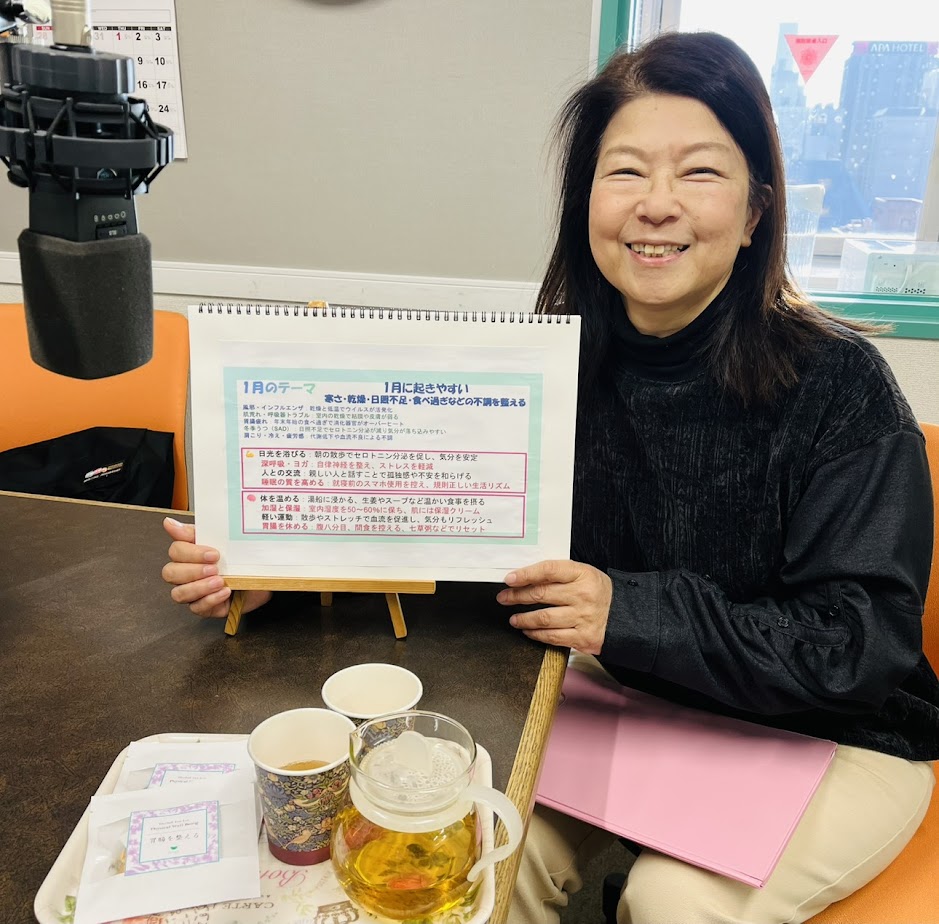 SUN
WED THU FRI SAT
31 1 2 3
9 10
16 17
24
APA HOTEL
1月のテーマ
1月に起きやすい
寒さ・乾燥・日照不足・食べ過ぎなどの不調を整える
風邪・インフルエンザ：乾燥と低温でウイルスが活発化
肌荒れ・呼吸器トラブル：室内の乾燥で粘膜や皮膚が弱る
胃腸疲れ：年末年始の食べ過ぎで消化器官がオーバーヒート
冬季うつ（SAD）：日照不足でセロトニン分泌が減り気分が落ち込みやすい
肩こり・冷え・疲労感：代謝低下や血流不良による不調
日光を浴びる：朝の散歩でセロトニン分泌を促し、気分を安定
深呼吸・ヨガ：自律神経を整え、ストレスを軽減
人との交流：親しい人と話すことで孤独感や不安を和らげる
睡眠の質を高める：就寝前のスマホ使用を控え、規則正しい生活リズム
体を温める：湯船に浸かる、生姜やスープなど温かい食事を摂る
加湿と保湿：室内湿度を50～60%に保ち、肌には保湿クリーム
軽い運動：散歩やストレッチで血流を促進し、気分もリフレッシュ
胃腸を休める：腹八分目、間食を控える、七草粥などでリセット
胃腸を整える
CARTE